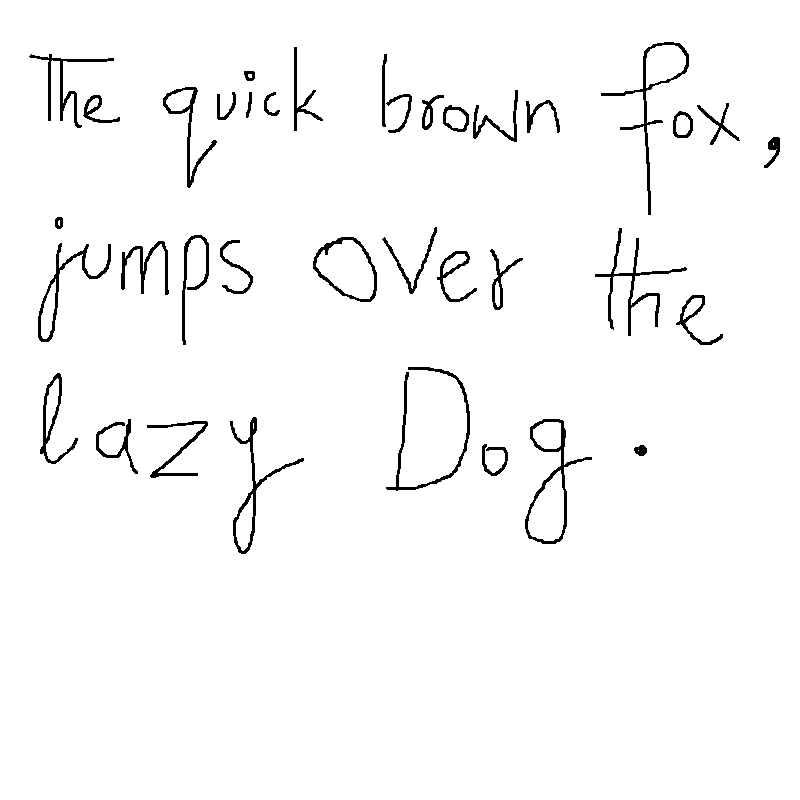 The quick brown fox,
jumps over the
lazy Dog.